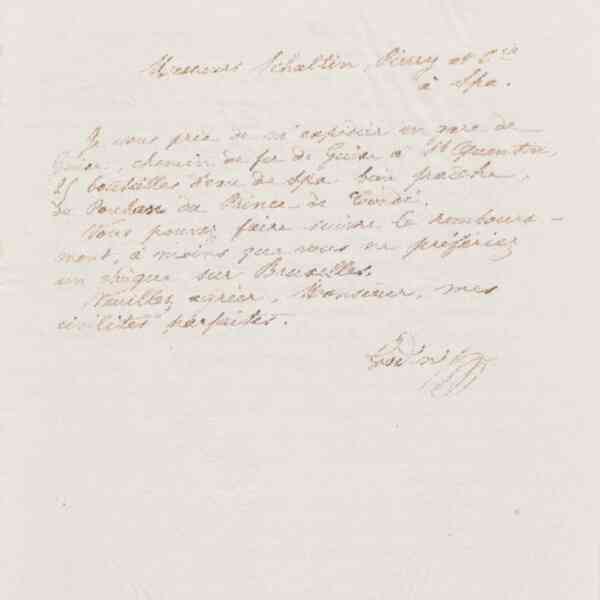 Messieurs Schaltin, Pierry et Cie
à Spa.
Je vous prie de m'expédier en gare de
Guise, chemin de fer de Guise à St Quentin,
25 bouteilles d'eau de Spa bien fraîche,
du Pouhon du Prince de Condé.
Vous pouvez faire suivre le rembourse-
ment, à moins que vous ne préfériez
un chèque sur Bruxelles.
Veuillez agréer, Monsieur, mes
civilités parfaites.
Godin